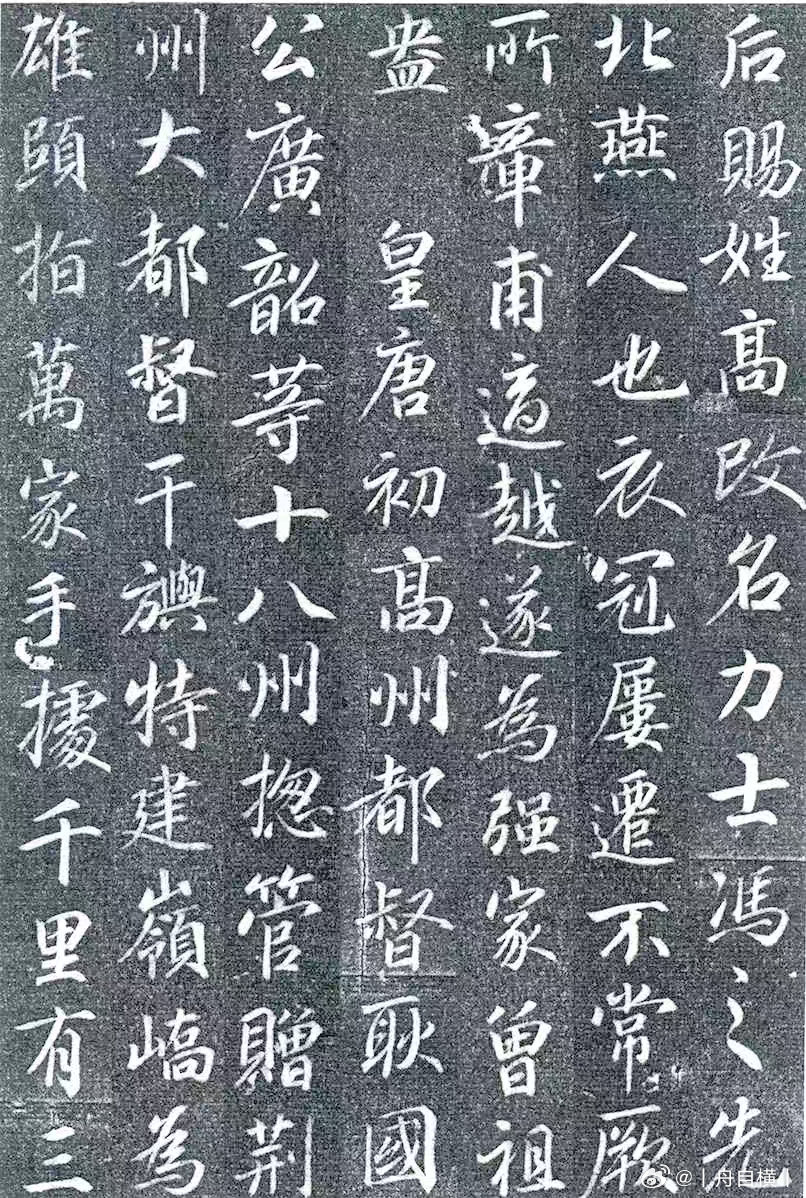 后賜姓高改名力士馮之先
北燕人也衣冠屢遷不常厥
所章甫適越遂為强家曾祖
盎 皇唐初高州都督耿國
公廣韶等十八州揔管贈荊
州大都督干旟特建嶺嶠為
雄頤指萬家手據千里有三
@丨舟自横